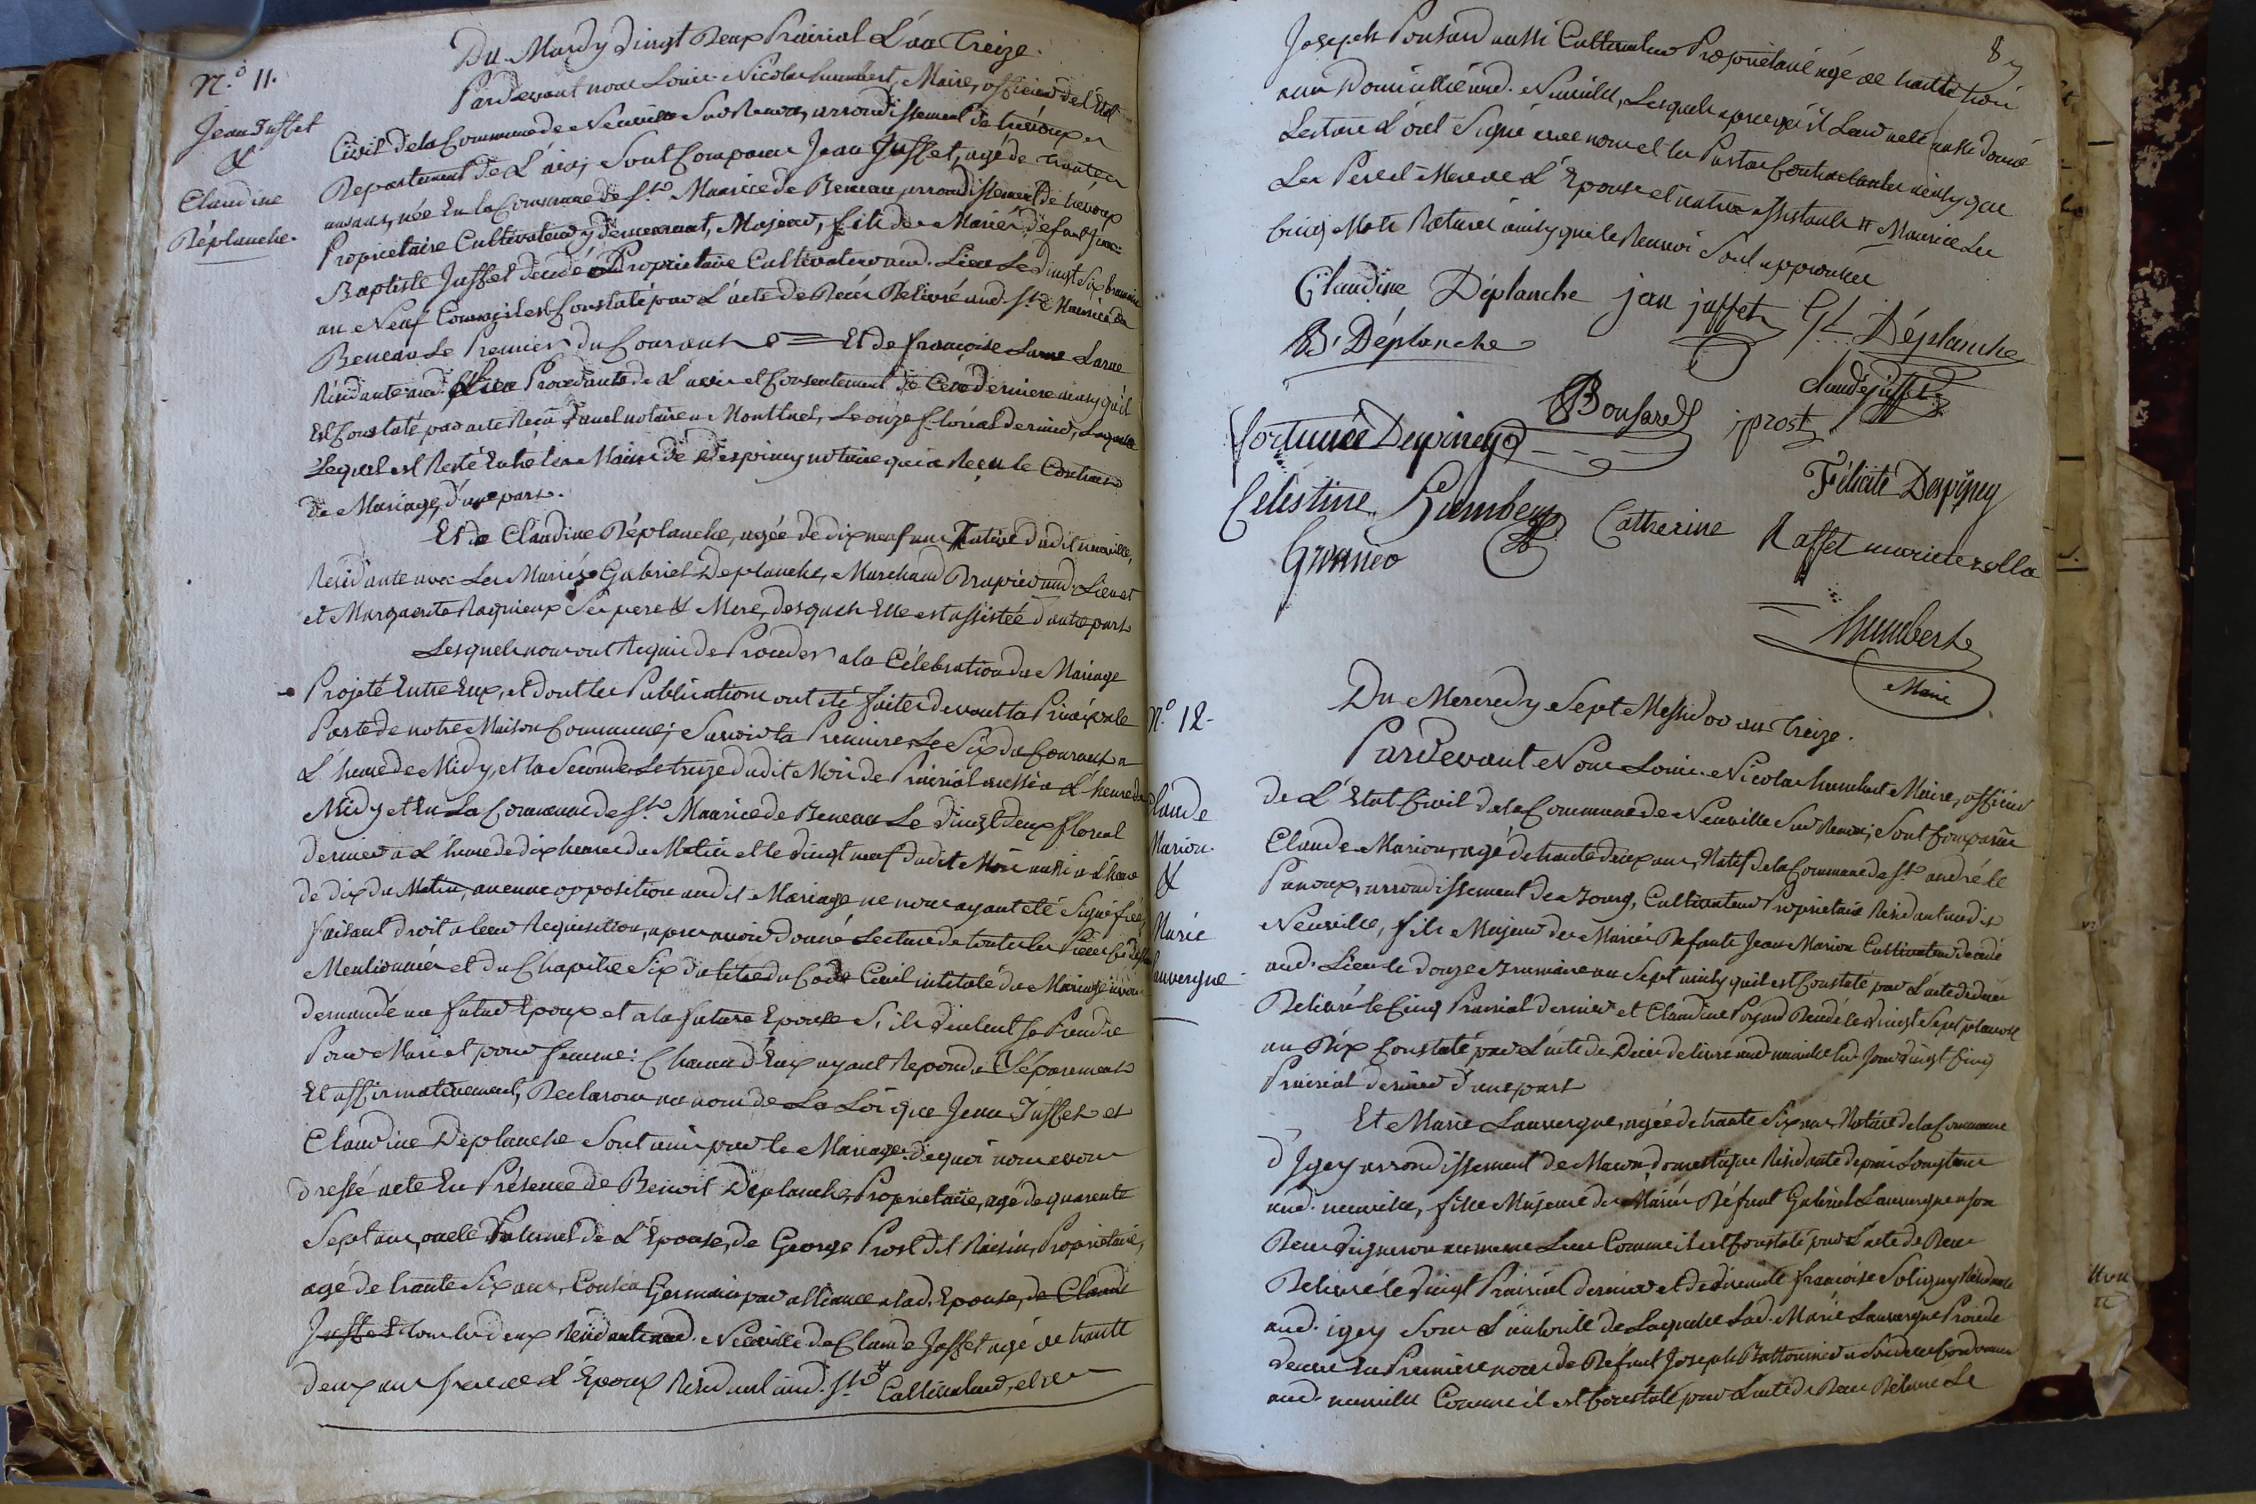 N.º 11.
Jean Juffet
&
Claudine
Déplanche.
Du Mardy Vingt Deux Prairial L'an Treize.
Pardevant nous Louis Nicolas humbert, Maire, officier de l'Etat
Civil de la Commune de Neuville Sur Renon, arrondissement de trévoux
Departement de L'ain; Sont Comparus Jean Juffet, agé de trente
ans, née En la Commune de St. Maurice de Beneau arrondissement de trévoux
Proprietaire Cultivateur y demeurant, Majeur, fils de Mariés défunt Jean
Baptiste Juffet décédé Proprietaire Cultivateur aud. Lieu Le Vingt Six brumaire
an Neuf Comme il est Constaté par L'acte de Decès Delivré aud. St. Maurice de
Beneau Le Premier du Courant = Et de françoise Larue
Résidante aud. Lieu Procedante de L'avis et Consentement de Cette derniere ainsy qu'il
Est Constaté par acte Reçu notaire a Montluel, Le onze floréal dernier,
Lequel est Resté Entre les Mains de Despiney notaire qui a Reçu le Contrat
de Mariage, d'une part.
Et de Claudine Déplanche, agée de dix neuf ans Native dudit neuville,
Résidante avec Les Mariés Gabriel Deplanche, Marchand Drapier aud. Lieu et
et Marguerite Ses pere & Mere, desquels Elle est assistée d'autre part
Lesquels nous ont Requis de Proceder a la Célebration du Mariage
Projeté Entre Eux, et dont les Publications ont été faites devant la Principale
Porte de notre Maison Commune; Savoir la Premiere Le Six du Courant a
L'heure de Midy, et la Seconde Le treize dudit Mois de Prairial aussi a L'heure de
Midy et En La Commune de St. Maurice de Beneau Le Vingt deux floreal
dernier a L'heure de dix heures du Matin et le Vingt neuf dudit Mois aussi a L'heure
de dix du Matin, aucune opposition audit Mariage ne nous ayant été Signifiée,
faisant droit a leur Requisition, apres avoir donné Lecture de toutes les Pieces Ci dessus
Mentionnées et du Chapitre Six du titre du Code Civil intitulé du Mariage avons
demandé au futur Epoux et a la future Epouse S'ils Veulent Se Prendre
Pour Mari et pour femme: Chacun d'Eux ayant Repondu Séparement
Et affirmativement, Declarons au nom de La Loi que Jean Juffet et
Claudine Déplanche Sont unis par le Mariage. de quoi nous avons
dressé acte En Présence de Benoit Déplanche, Proprietaire, agé de quarante
Sept ans, oncle Paternel de L'Epouse, de George Prost dit Raisin, Proprietaire,
agé de trente Six ans, Cousin Germain par alliance a lad. Epouse, de Claude
Juffet tous les deux Résidants aud. Neuville de Claude Juffet agé de trente
deux ans frere de L'Epoux Résidant aud. St. # Cultivateur, et de
89
Joseph Ponsard aussi Cultivateur Proprietaire agé de trente trois
ans Domicilié aud. Neuville, Lesquels apres qu'il Leur a été aussi donné
Lecture L'ont Signé avec nous et les Parties Contractantes ainsy que
Les Pere et Mere de L'Epouse et autres assistants # Maurice Les
Cinq Mots Raturés ainsy que le Renvoi Sont approuvés
Claudine Déplanche jan juffet GL Déplanche
B. Déplanche claude juffet
Bonsard jprost
fortunée Despiney
Félicité Despiney
Celestine Humbert Catherine Raffet
humbert
Maire
N.º 12.
Claude
Marion.
&
Marie
Lauvergne
Du Mercredy Sept Messidor an Treize.
Pardevant Nous Louis Nicolas humbert Maire, officier
de L'Etat Civil de la Commune de Neuville Sur Renon; Sont Comparus
Claude Marion, agé de trente deux ans, Natif de la Commune de St. andré le
Panoux, arrondissement de Bourg, Cultivateur Proprietaire Résidant audit
Neuville, fils Majeur des Mariés Défunts Jean Marion Cultivateur décédé
aud. Lieu le douze brumaire an Sept ainsy qu'il est Constaté par L'acte de decès
Delivré le Cinq Prairial dernier et Claudine Poyard Décédée Le Vingt Sept pluviose
an Dix Constaté par L'acte de Décès delivré aud neuville led. Jour Vingt Cinq
Prairial dernier d'une part
Et Marie Lauvergne, agée de trente Six ans, Native de la Commune
d'Igey arrondissement de Macon domestique Résidante depuis Longtems
aud. neuville, fille Majeure de Mariés Défunt Gabriel Lauvergne
Vigneron au meme Lieu Comme il est Constaté par L'acte de Deces
Delivré le Vingt Prairial dernier et de Vivante françoise Soligny Résidante
aud. igey Sous L'autorité de Laquelle Lad. Marie Lauvergne Procede
Veuve En Premiere noces de Défunt Joseph
aud. neuville Comme il est Constaté par L'acte de Deces Delivré Le